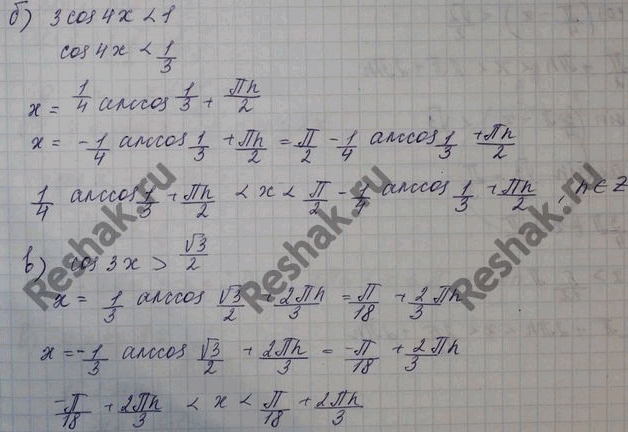 б) 3cos4x < 1
cos4x < 1/3
x = 1/4 arccos 1/3 + πn/2
x = -1/4 arccos 1/3 + πn/2 = π/2 - 1/4 arccos 1/3 + πn/2
1/4 arccos 1/3 + πn/2 < x < π/2 - 1/4 arccos 1/3 + πn/2, n ∈ Z
в) cos3x > √3/2
x = 1/3 arccos √3/2 + 2πn/3 = π/18 + 2/3 πn
x = -1/3 arccos √3/2 + 2πn/3 = -π/18 + 2/3 πn
-π/18 + 2πn/3 < x < π/18 + 2πn/3
Reshak.ru
Reshak.ru
Reshak.ru